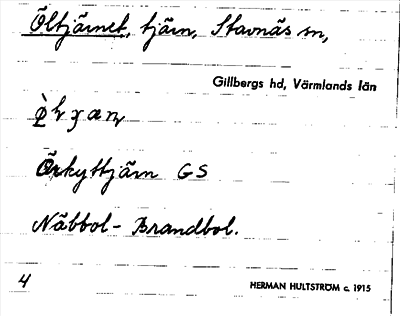 Öltjärnet, tjärn, Stavnäs sn,
Gillbergs hd, Värmlands län
Örkyttjärn GS
Näbbol - Brandbol.
4
HERMAN HULTSTRÖM c. 1915